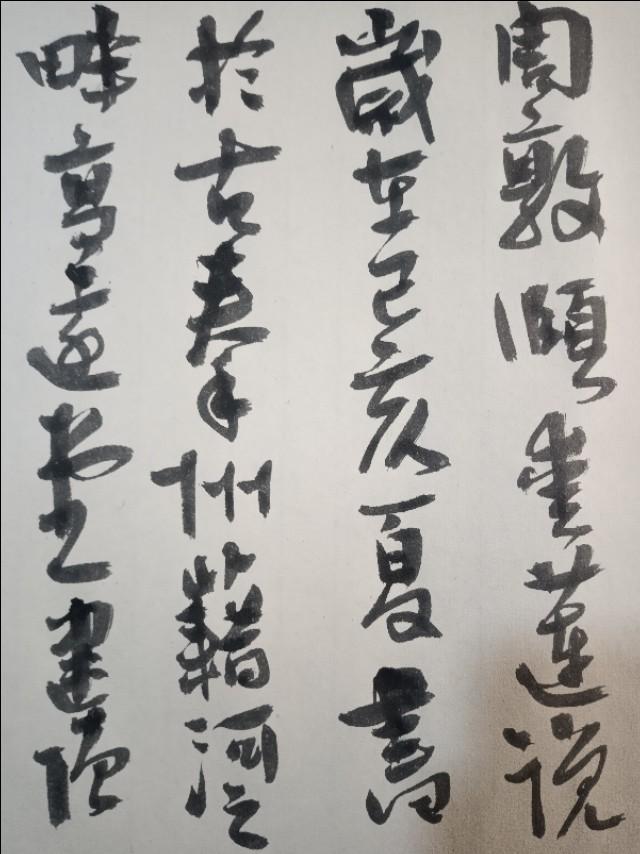 周敦頤愛蓮說
歲在己亥夏書
於古秦州藉河之
畔高遠堂建